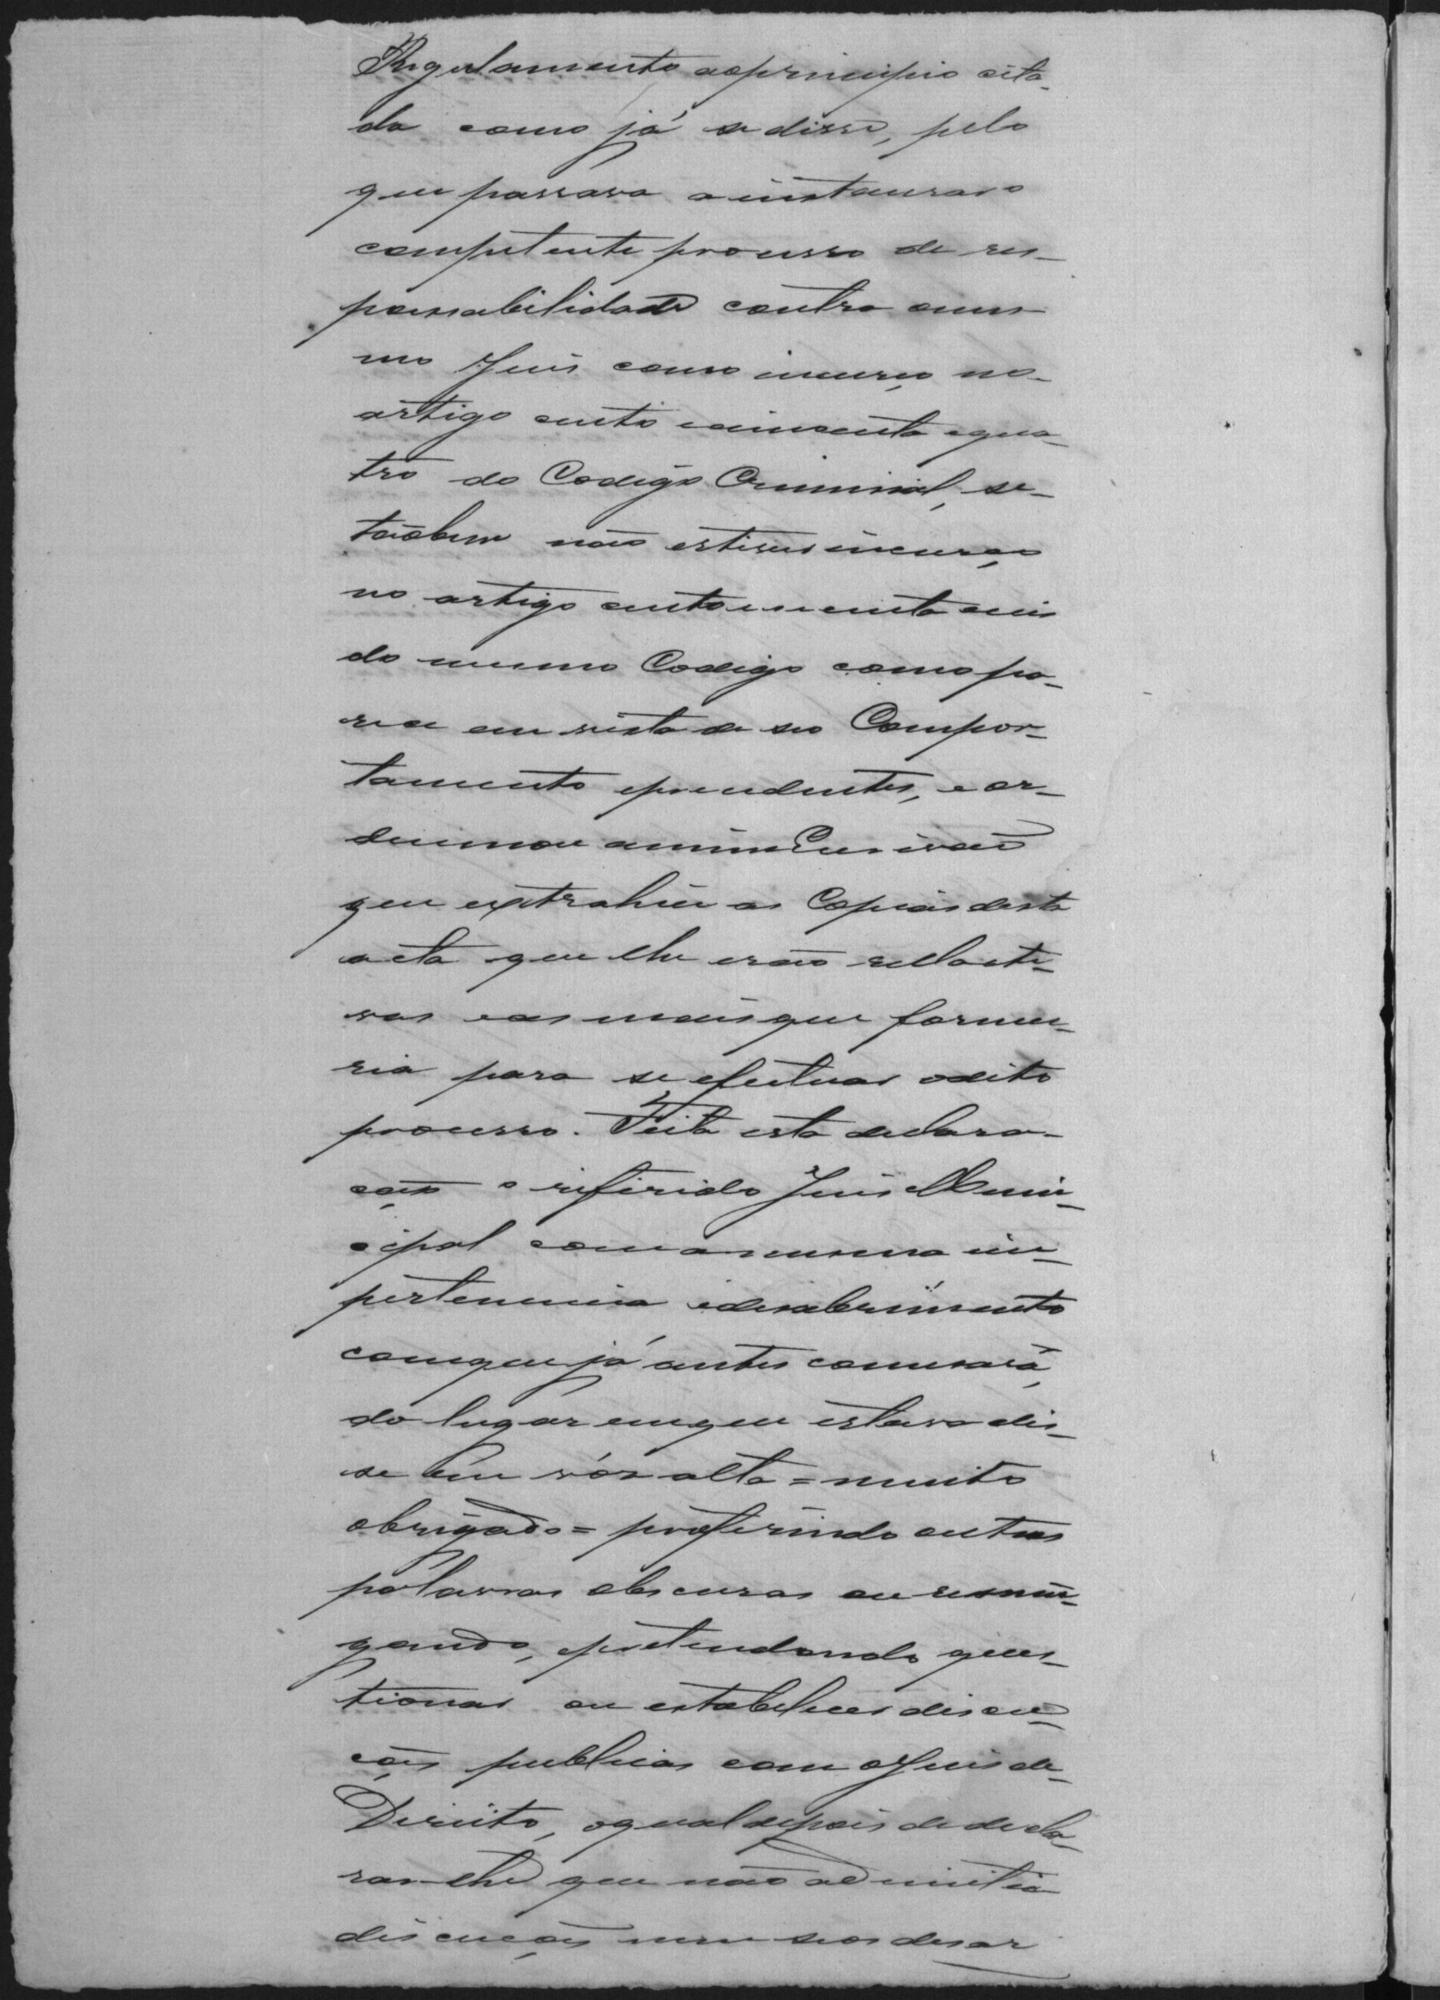 Regulamento aoprincipio cita-
do como já se disse, pelo
que passava a instaurar o
competente processo de res-
ponsabilidade contra omes-
mo Juis como incurço no
artigo cento cincoenta equa-
tro do Codigo Criminal, se-
taõbem não estiver incurço
no artigo cento e seis
do mesmo Codigo como pa-
rece em vista de seo Compor-
tamento eprecedentes, e or-
denou amim Escrivaõ
que extrahice as Copias desta
acta que lhe eraõ rellacti-
vas e as mais que forne-
ria para se efectuar odito
processo. Feita esta declara-
çaõ o referido Juis Muni-
cipal comamesma im-
pertenencia edescabrimento
comque já antes comesará,
do lugar emque estava dis-
se em vós alta = muito
obrigado = proferindo outras
palavras obscuras ou resmũ-
gando, epretendendo ques-
tionar ou estabelecer discu-
çoẽs publicas com oJuis de
Direito, oqual depois de decla-
rar-lhe que não admitia
discuçoẽs nem seos desar